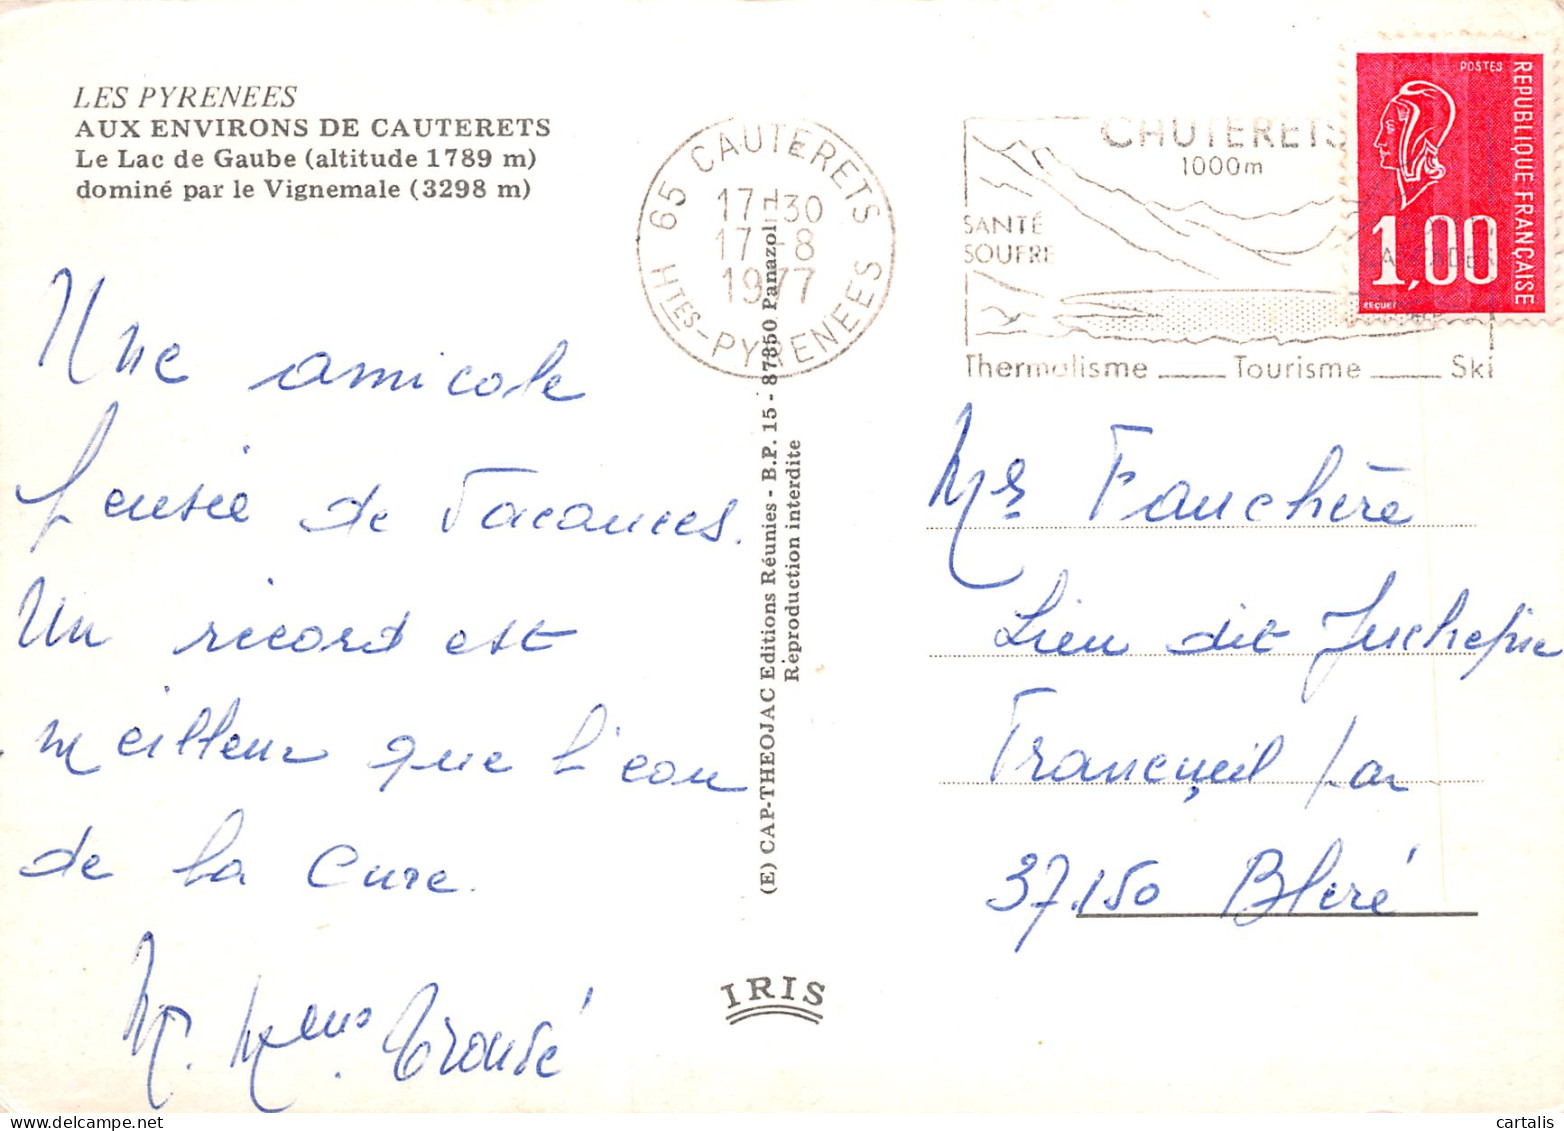 LES PYRENEES
AUX ENVIRONS DE CAUTERETS
Le Lac de Gaube (altitude 1789 m)
dominé par le Vignemale (3298 m)
Une amicale
pensée de Vacances.
Un ricard est
meilleur que l'eau
de la Cure.
M. Mme
65 CAUTERETS
17H30
17-8
1977
HTES-PYRENEES
CAUTERETS
1000m
SANTÉ
SOUFRE
Thermalisme ___ Tourisme ___ Ski
POSTES
REPUBLIQUE FRANÇAISE
1,00
BEQUET
(E) CAP-THEOJAC Editions Réunies - B.P. 15 - 87350 Panazol
Reproduction interdite
Fauchère
Lieu dit
Francueil par
37.150 Bléré
IRIS
cartalis